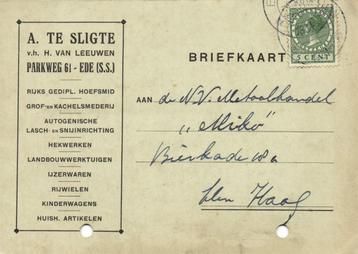 A. TE SLIGTE
v.h. H. VAN LEEUWEN
PARKWEG 61 - EDE (S.S.)
RIJKS GEDIPL. HOEFSMID
GROF- EN KACHELSMEDERIJ
AUTOGENISCHE
LASCH- EN SNIJINRICHTING
HEKWERKEN
LANDBOUWWERKTUIGEN
IJZERWAREN
RIJWIELEN
KINDERWAGENS
HUISH. ARTIKELEN
BRIEFKAART
5 CENT
AAN de N.V. Metaalhandel
„Miko”
Bierkade 18a
Den Haag